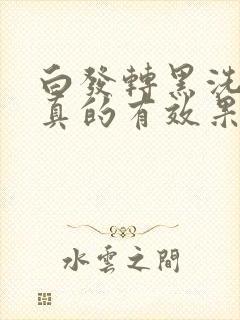 白發轉黑洗
真的有效果
水雲之間